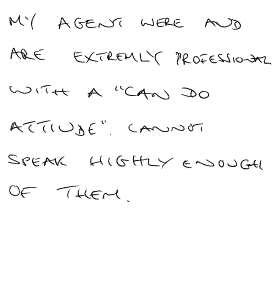 MY AGENT WERE AND
ARE EXTREMLY PROFESSIONAL
WITH A "CAN DO
ATTIUDE". CANNOT
SPEAK HIGHLY ENOUGH
OF THEM.